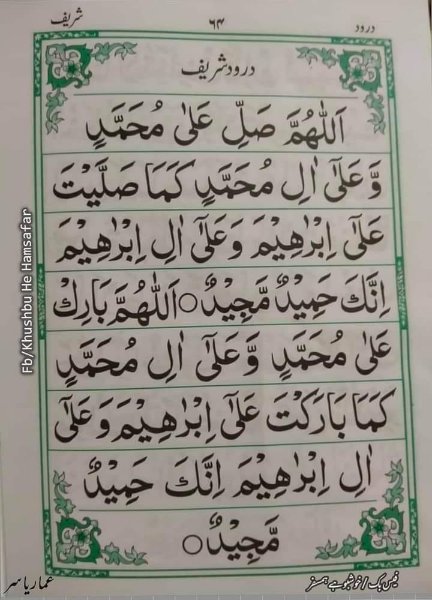 درود
۶۴
شریف
درود شریف
اَللّٰهُمَّ صَلِّ عَلٰى مُحَمَّدٍ
وَّعَلٰٓى اٰلِ مُحَمَّدٍ كَمَا صَلَّيْتَ
عَلٰٓى اِبْرٰهِيْمَ وَعَلٰٓى اٰلِ اِبْرٰهِيْمَ
اِنَّكَ حَمِيْدٌ مَّجِيْدٌ○اَللّٰهُمَّ بَارِكْ
عَلٰى مُحَمَّدٍ وَّعَلٰٓى اٰلِ مُحَمَّدٍ
كَمَا بَارَكْتَ عَلٰٓى اِبْرٰهِيْمَ وَعَلٰٓى
اٰلِ اِبْرٰهِيْمَ اِنَّكَ حَمِيْدٌ
مَّجِيْدٌ○
Fb/Khushbu He Hamsafar
فیس بک/خوشبو ہے ہمسفر
عمار یاسر